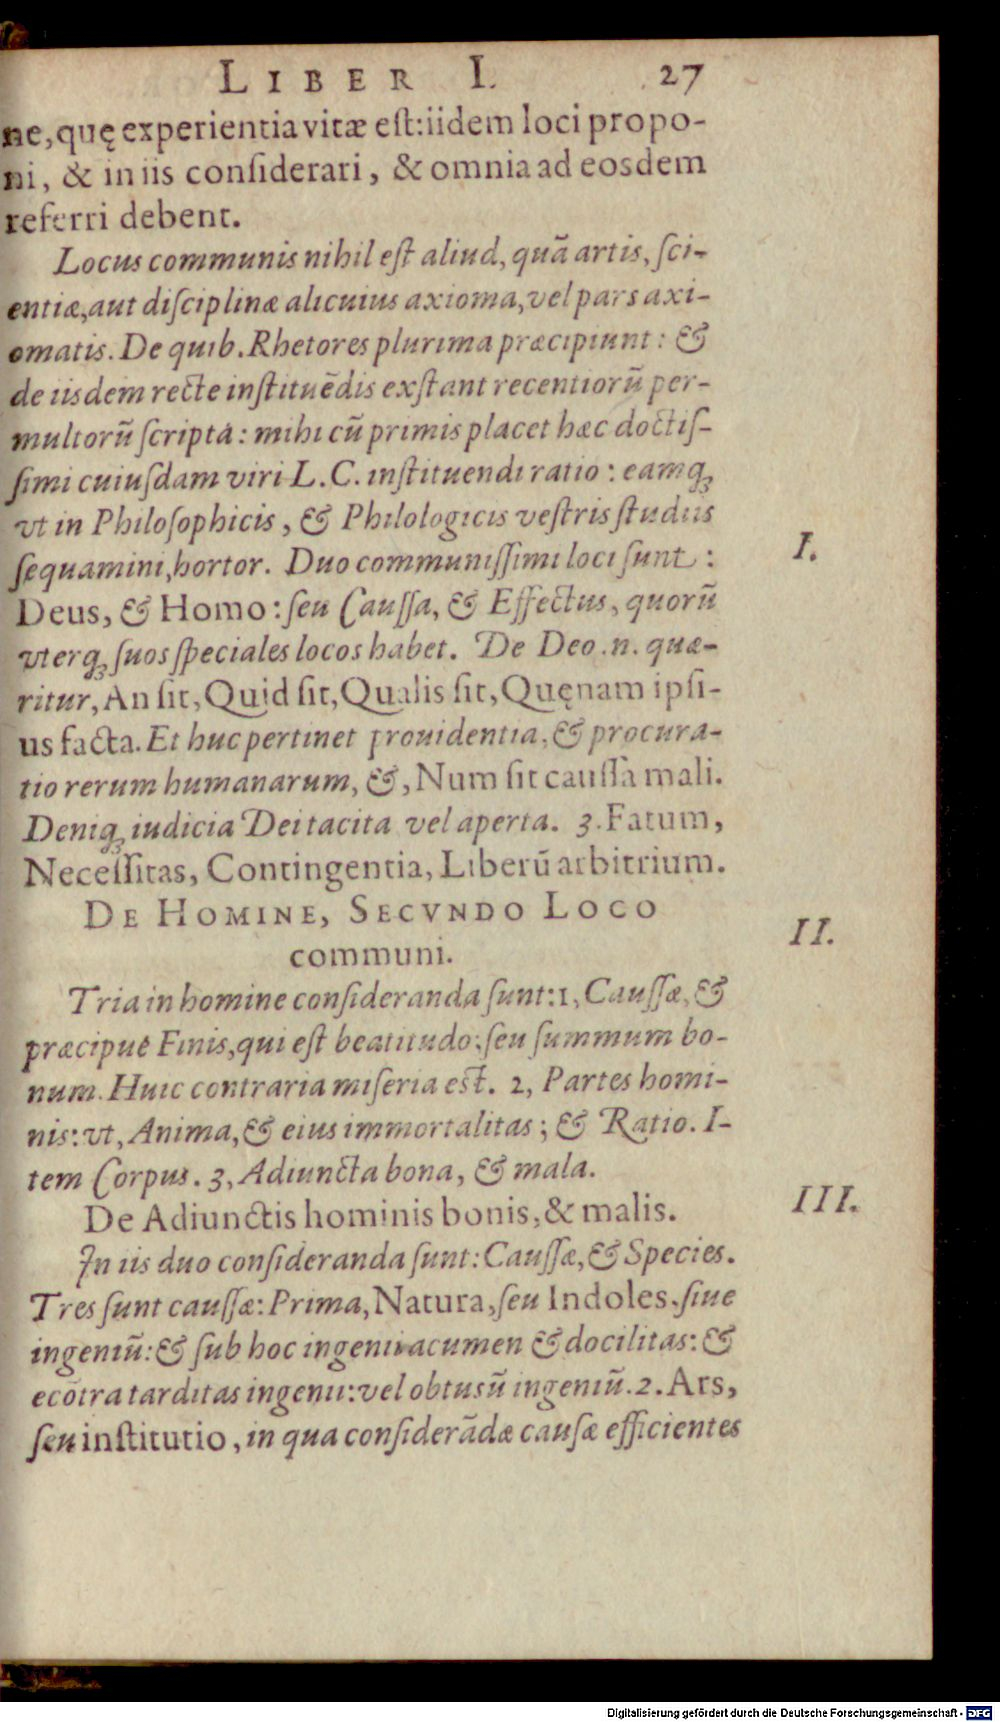 LIBER I. 27
ne, quę experientia vitæ eſt: iidem loci propo-
ni, & in iis conſiderari, & omnia ad eosdem
referri debent.
Locus communis nihil eſt aliud, quā artis, ſci-
entiæ, aut diſciplinæ alicuius axioma, vel pars axi-
omatis. De quib. Rhetores plurima præcipiunt: &
de iisdem recte inſtituēdis exſtant recentiorū per-
multorū ſcripta: mihi cū primis placet hæc doctiſ-
ſimi cuiuſdam viri L. C. inſtituendi ratio: eamq́;
vt in Philoſophicis, & Philologicis veſtris ſtudiis
I.
ſequamini, hortor. Duo communiſſimi loci ſunt:
Deus, & Homo: ſeu Cauſſa, & Effectus, quorū
vterq; ſuos ſpeciales locos habet. De Deo .n. quæ-
ritur, An ſit, Quid ſit, Qualis ſit, Quęnam ipſi-
us facta. Et huc pertinet prouidentia, & procura-
tio rerum humanarum, &, Num ſit cauſſa mali.
Deniq; iudicia Dei tacita vel aperta. 3. Fatum,
Neceſſitas, Contingentia, Liberū arbitrium.
DE HOMINE, SECVNDO LOCO
II.
communi.
Tria in homine conſideranda ſunt: 1, Cauſſæ, &
præcipuè Finis, qui eſt beatitudo: ſeu ſummum bo-
num. Huic contraria miſeria est. 2, Partes homi-
nis: vt, Anima, & eius immortalitas; & Ratio. I-
tem Corpus. 3, Adiuncta bona, & mala.
III.
De Adiunctis hominis bonis, & malis.
In iis duo conſideranda ſunt: Cauſſæ, & Species.
Tres ſunt cauſſæ: Prima, Natura, ſeu Indoles, ſiue
ingeniū: & ſub hoc ingenii acumen & docilitas: &
ecōtra tarditas ingenii: vel obtusū ingeniū. 2. Ars,
ſeu inſtitutio, in qua conſiderādæ cauſæ efficientes
Digitalisierung gefördert durch die Deutsche Forschungsgemeinschaft - DFG